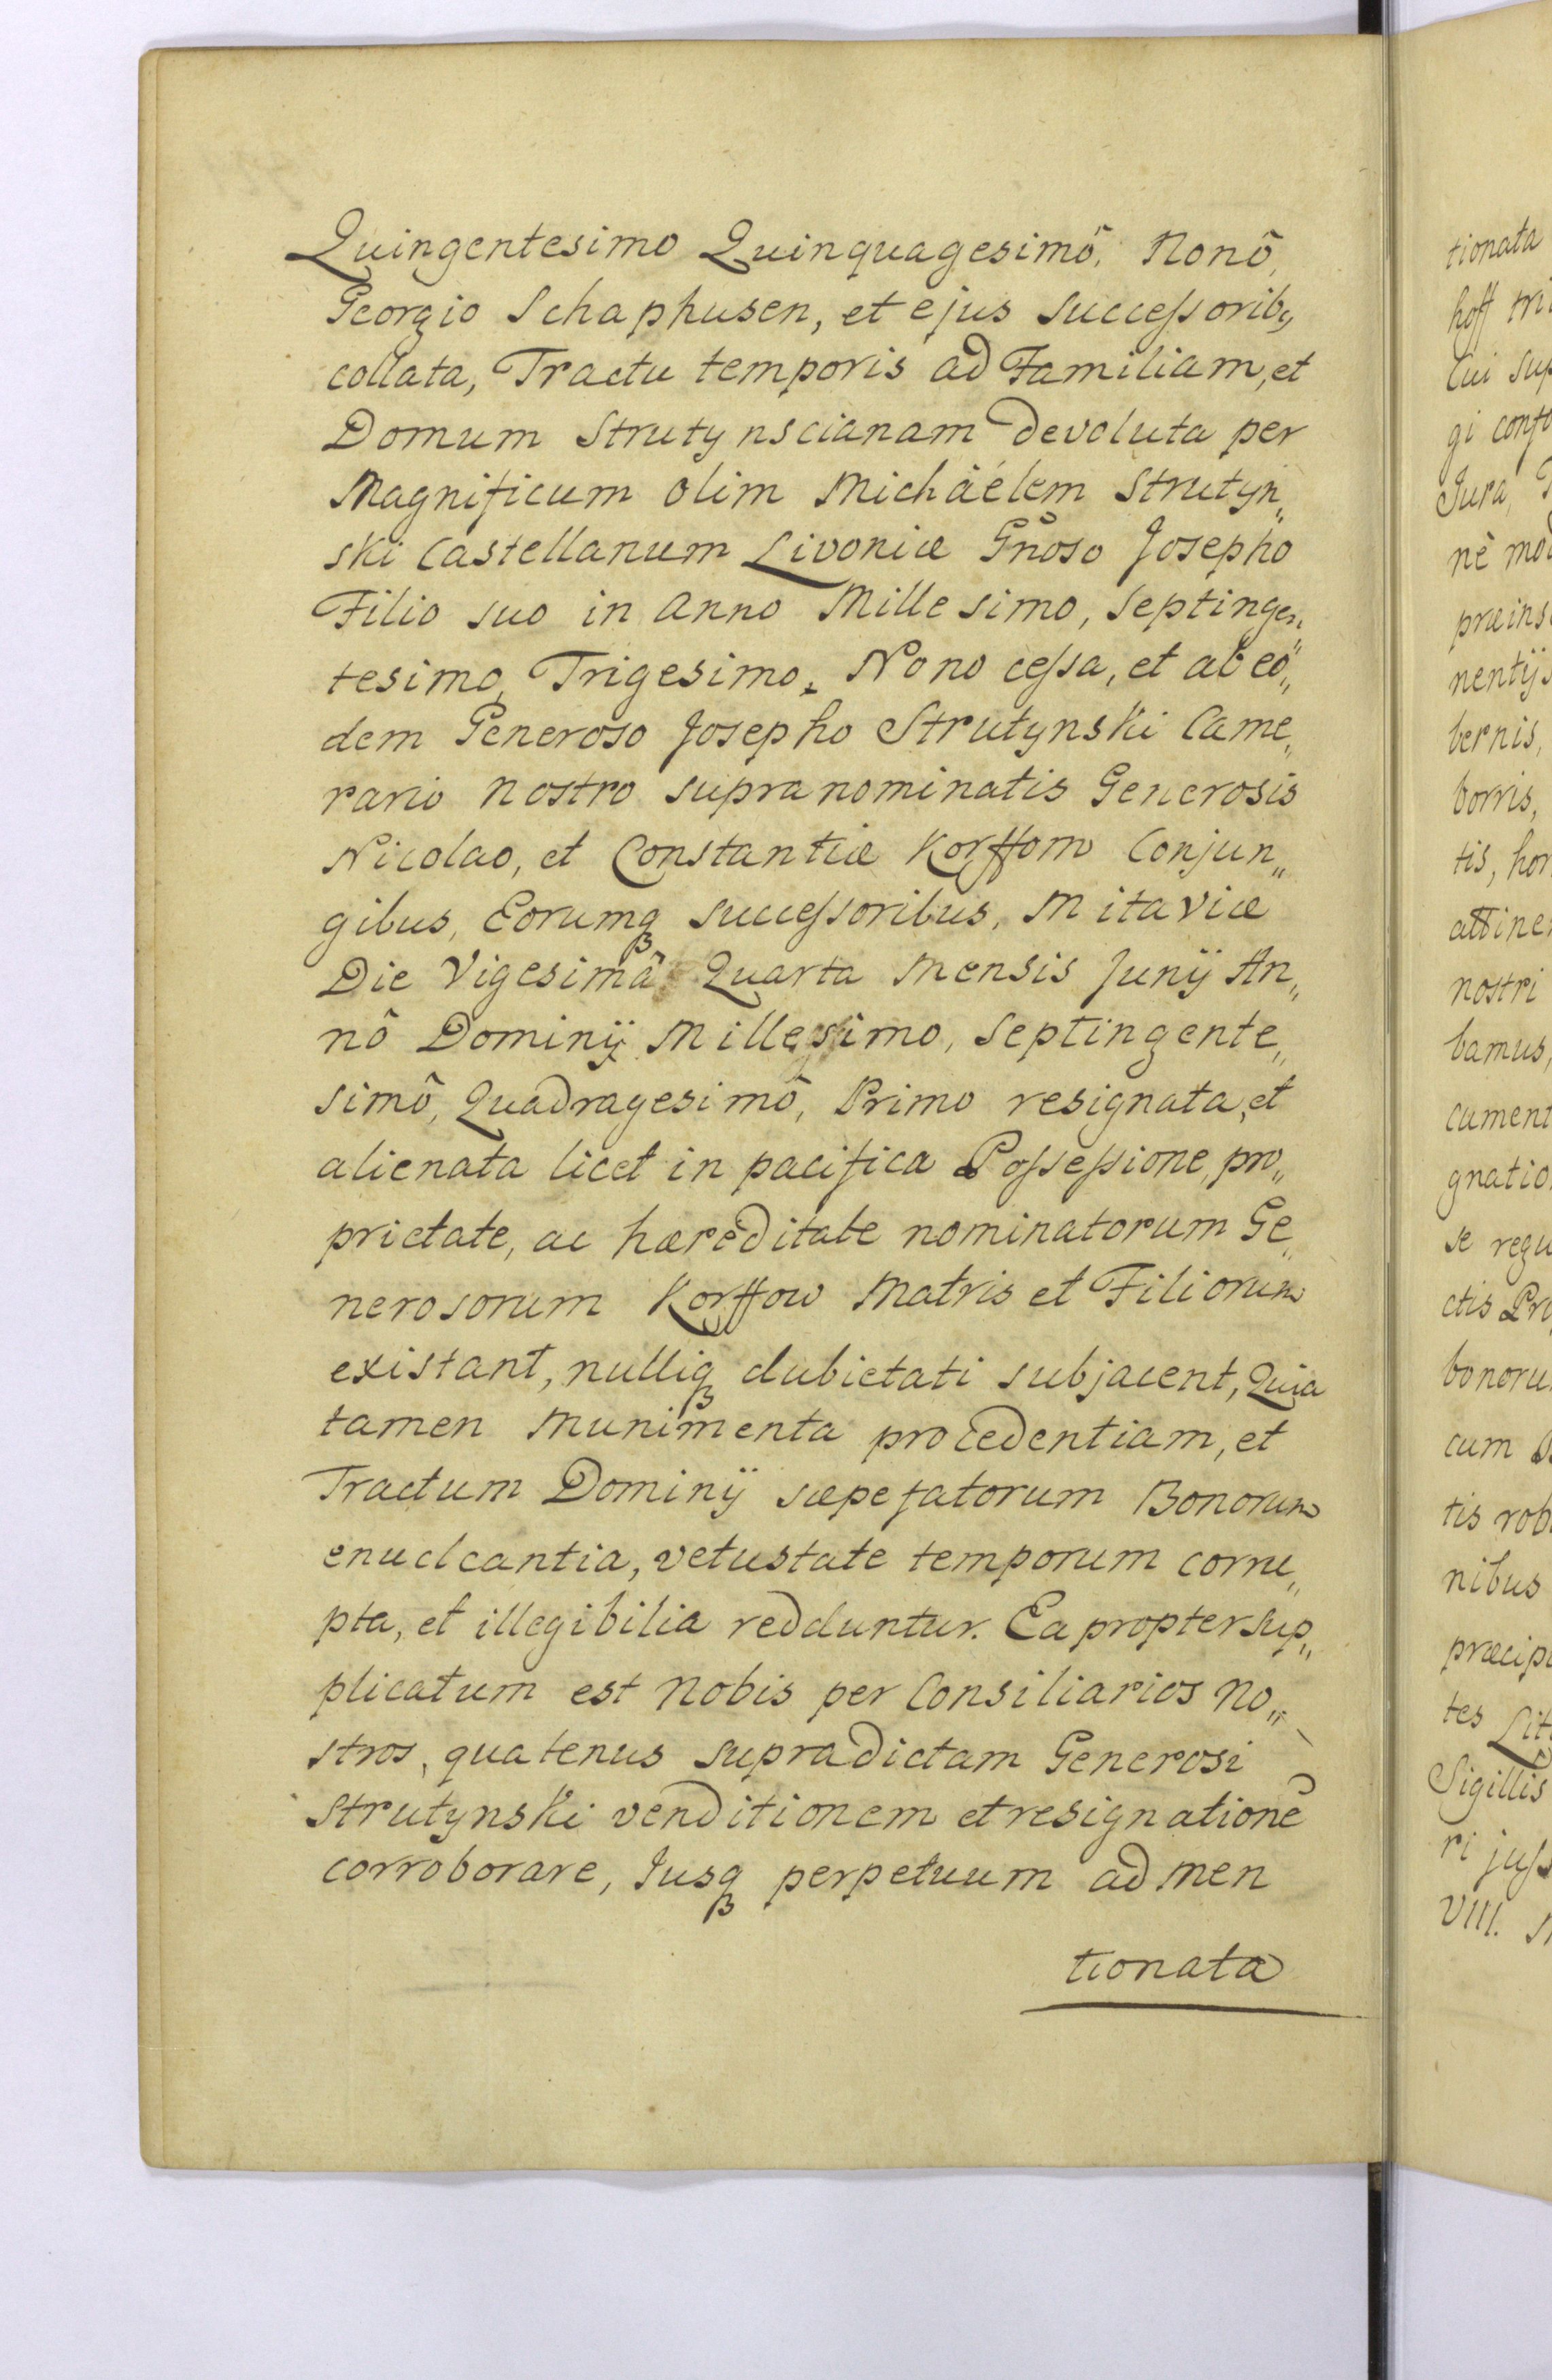 Quingentesimo Quinquagesimô, Nonô,
Georgio Schaphusen, et ejus successoribꝫ
collata, Tractu temporis ad Familiam, et
Domum Strutynscianam devoluta per
Magnificum olim Michäélem Strutyn„
ski Castellanum Livoniæ Gñoso Josepho
Filio suo in anno Millesimo, Septingen„
tesimo, Trigesimo, Nono cessa, et ab eô„
dem Generoso Josepho Strutynski Came„
rario nostro supranominatis Generosis
Nicolao, et Constantiæ Korffom Conjun„
gibus, Eorumqꝫ successoribus, Mitaviæ
Die Vigesimâ Quarta Mensis Junij An„
nô Dominij Millesimo, Septingente„
simô, Quadragesimô, Primo resignata, et
alienata licet in pacifica Possessione, pro„
prietate, ac hæreditate nominatorum Ge„
nerosorum Korffow Matris et Filiorum
existant, nulliqꝫ dubietati subjacent, Quia
tamen Munimenta procedentiam, et
Tractum Dominij sæpefatorum Bonorum
enucleantia, vetustate temporum corru„
pta, et illegibilia redduntur. Ea propter sup„
plicatum est Nobis per Consiliarios No„
stros, quatenus supradictam Generosi
Strutynski venditionem et resignationē
corroborare, Jusqꝫ perpetuum ad men
tionata
tionata
hoff
Cui
gi
Jura,
nè
nentijs
bernis,
borris,
tis,
nostri
bamus,
gnatio
se
ctis
cum
tis
nibus
tes
Sigillis
ri
VIII.